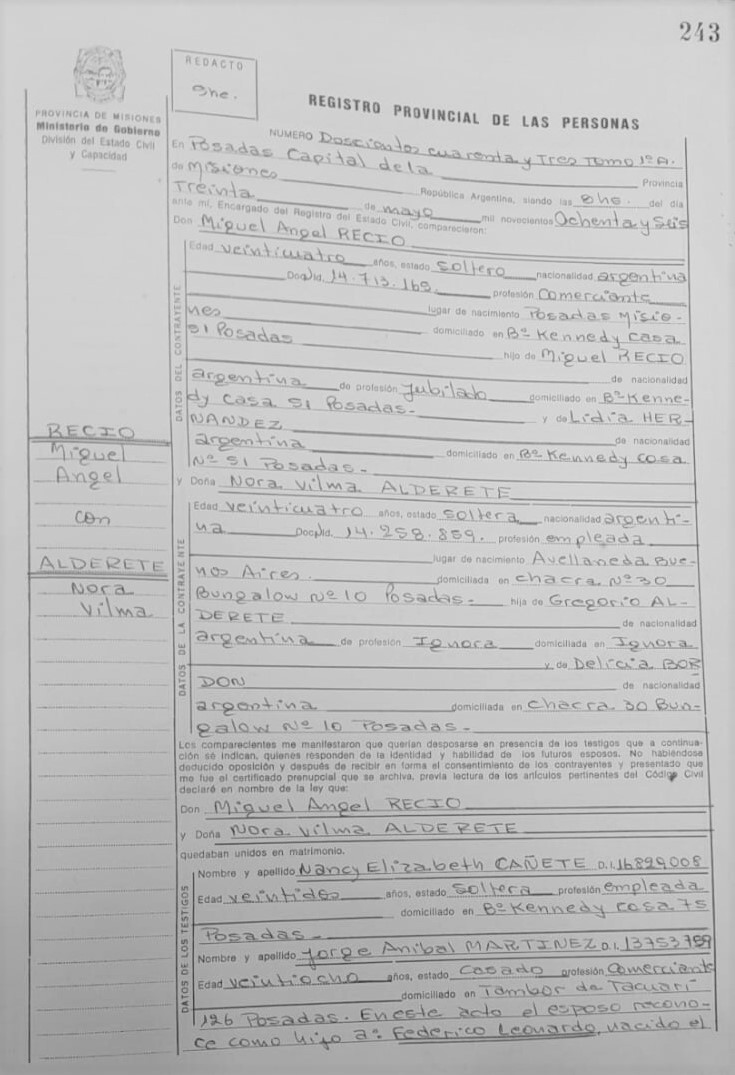 243
REDACTO
She.
PROVINCIA DE MISIONES
Ministerio de Gobierno
División del Estado Civil
y Capacidad
REGISTRO PROVINCIAL DE LAS PERSONAS
NUMERO Doscientos cuarenta y Tres Tomo 1º A.
En Posadas Capital de la Provincia
de Misiones República Argentina, siendo las 8 hs. del día
Treinta de mayo mil novecientos Ochenta y Seis
ante mí, Encargado del Registro del Estado Civil, comparecieron:
Don Miguel Angel RECIO
DATOS DEL CONTRAYENTE
Edad veinticuatro años, estado soltero nacionalidad argentina
14.713.169. profesión Comerciante
lugar de nacimiento Posadas Misio-
nes domiciliado en Bº Kennedy casa
51 Posadas hijo de Miguel RECIO
de nacionalidad
argentina de profesión Jubilado domiciliado en Bº Kenne-
dy casa 51 Posadas- y de Lidia HER-
NANDEZ de nacionalidad
argentina domiciliado en Bº Kennedy casa
Nº 51 Posadas-
y Doña Nora Vilma ALDERETE
DATOS DE LA CONTRAYENTE
Edad veinticuatro años, estado soltera nacionalidad argenti-
na 14.258.859. profesión empleada
lugar de nacimiento Avellaneda Bue-
nos Aires. domiciliada en chacra Nº 30
Bungalow Nº 10 Posadas- hija de Gregorio AL-
DERETE de nacionalidad
argentina de profesión Ignora domiciliada en Ignora
y de Delicia BOR
DON de nacionalidad
argentina domiciliado en chacra 30 Bun-
galow Nº 10 Posadas-
Los comparecientes me manifestaron que querían desposarse en presencia de los testigos que a continua-
ción se indican, quienes responden de la identidad y habilidad de los futuros esposos. No habiéndose
deducido oposición y después de recibir en forma el consentimiento de los contrayentes y presentado que
me fue el certificado prenupcial que se archiva, previa lectura de los artículos pertinentes del Código Civil
declaré en nombre de la ley que:
Don Miguel Angel RECIO
y Doña Nora Vilma ALDERETE
quedaban unidos en matrimonio.
DATOS DE LOS TESTIGOS
Nombre y apellido Nancy Elizabeth CAÑETE D.I. 16829008
Edad veintidos años, estado soltera profesión empleada
domiciliado en Bº Kennedy casa 75
Posadas-
Nombre y apellido Jorge Anibal MARTINEZ D.I. 13753759
Edad veintiocho años, estado casado profesión Comerciante
domiciliado en Tambor de Tacuari
126 Posadas. En este acto el esposo recono-
ce como hijo a: Federico Leonardo, nacido el
RECIO
Miguel
Angel
con
ALDERETE
Nora
Vilma